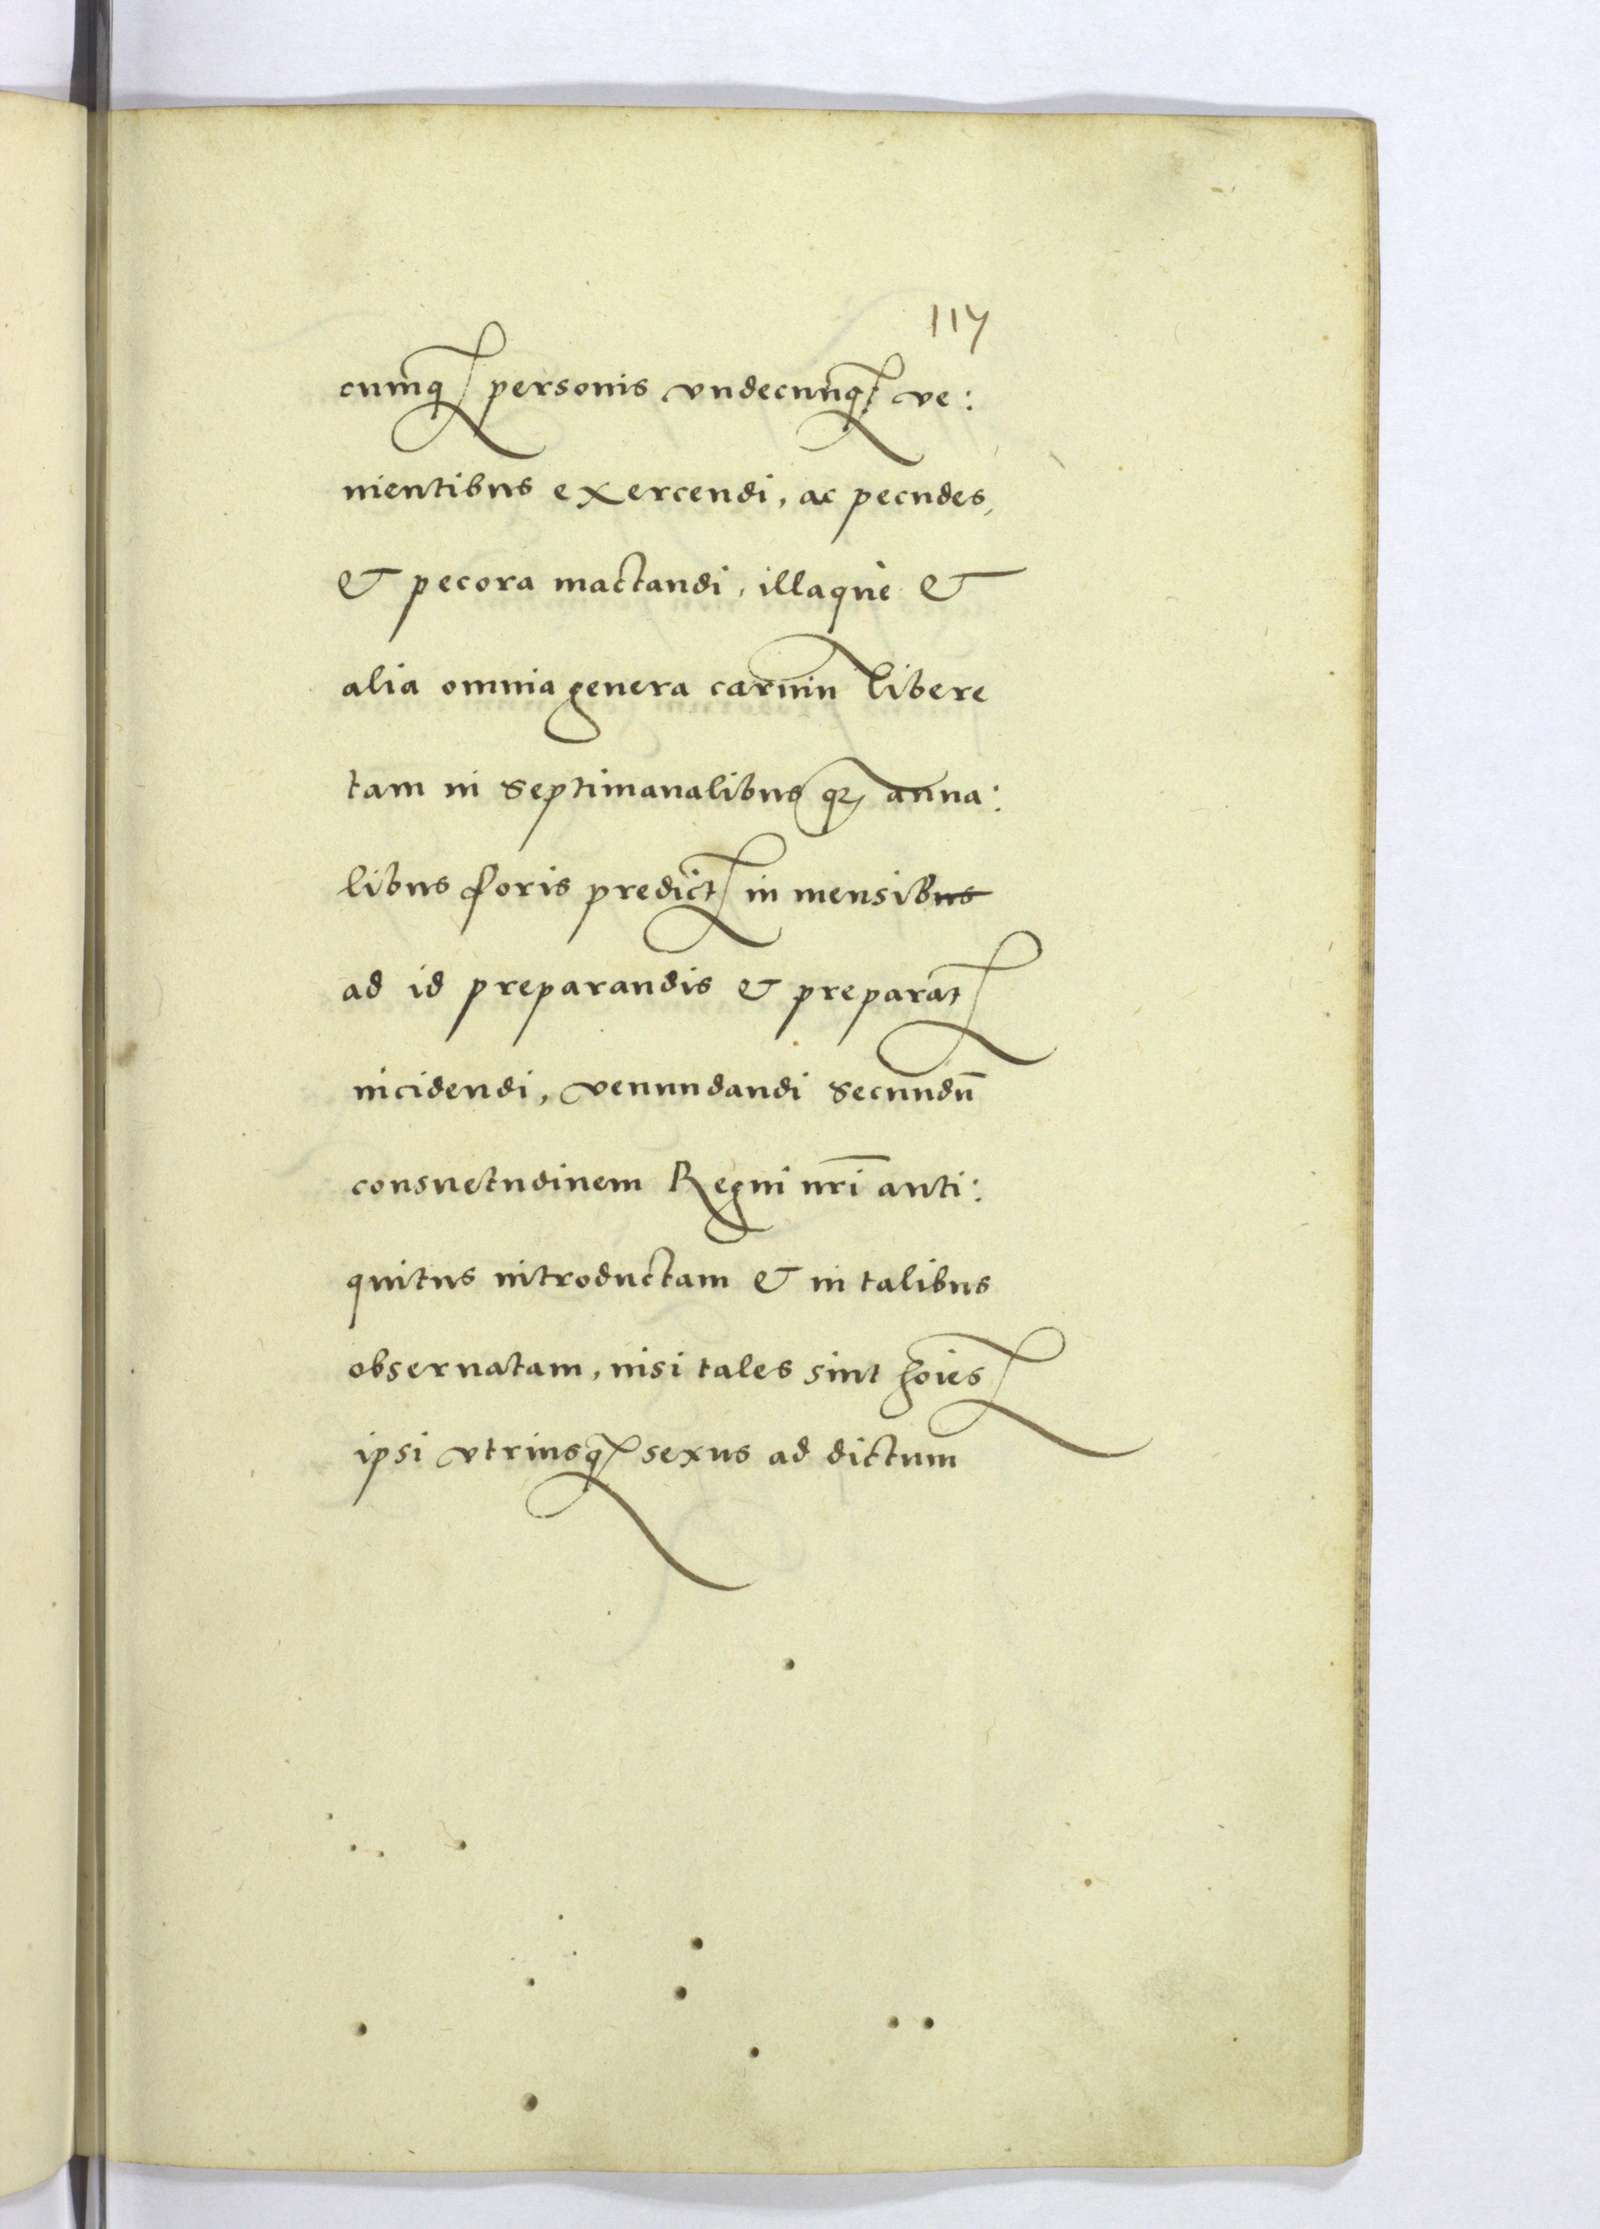 117
cumq personis vndecunq ve:
nientibus exercendi, ac pecudes,
& pecora mactandi, illaque &
alia omnia genera carniu libere
tam in septimanalibus q annua:
libus foris predict in mensibus
ad id preparandis & preparat
incidendi, venundandi secundū
consuetudinem Regni nrī anti:
quitus introductam & in talibus
obseruatam, nisi tales sint hōies
ipsi vtriusq sexus ad dictum